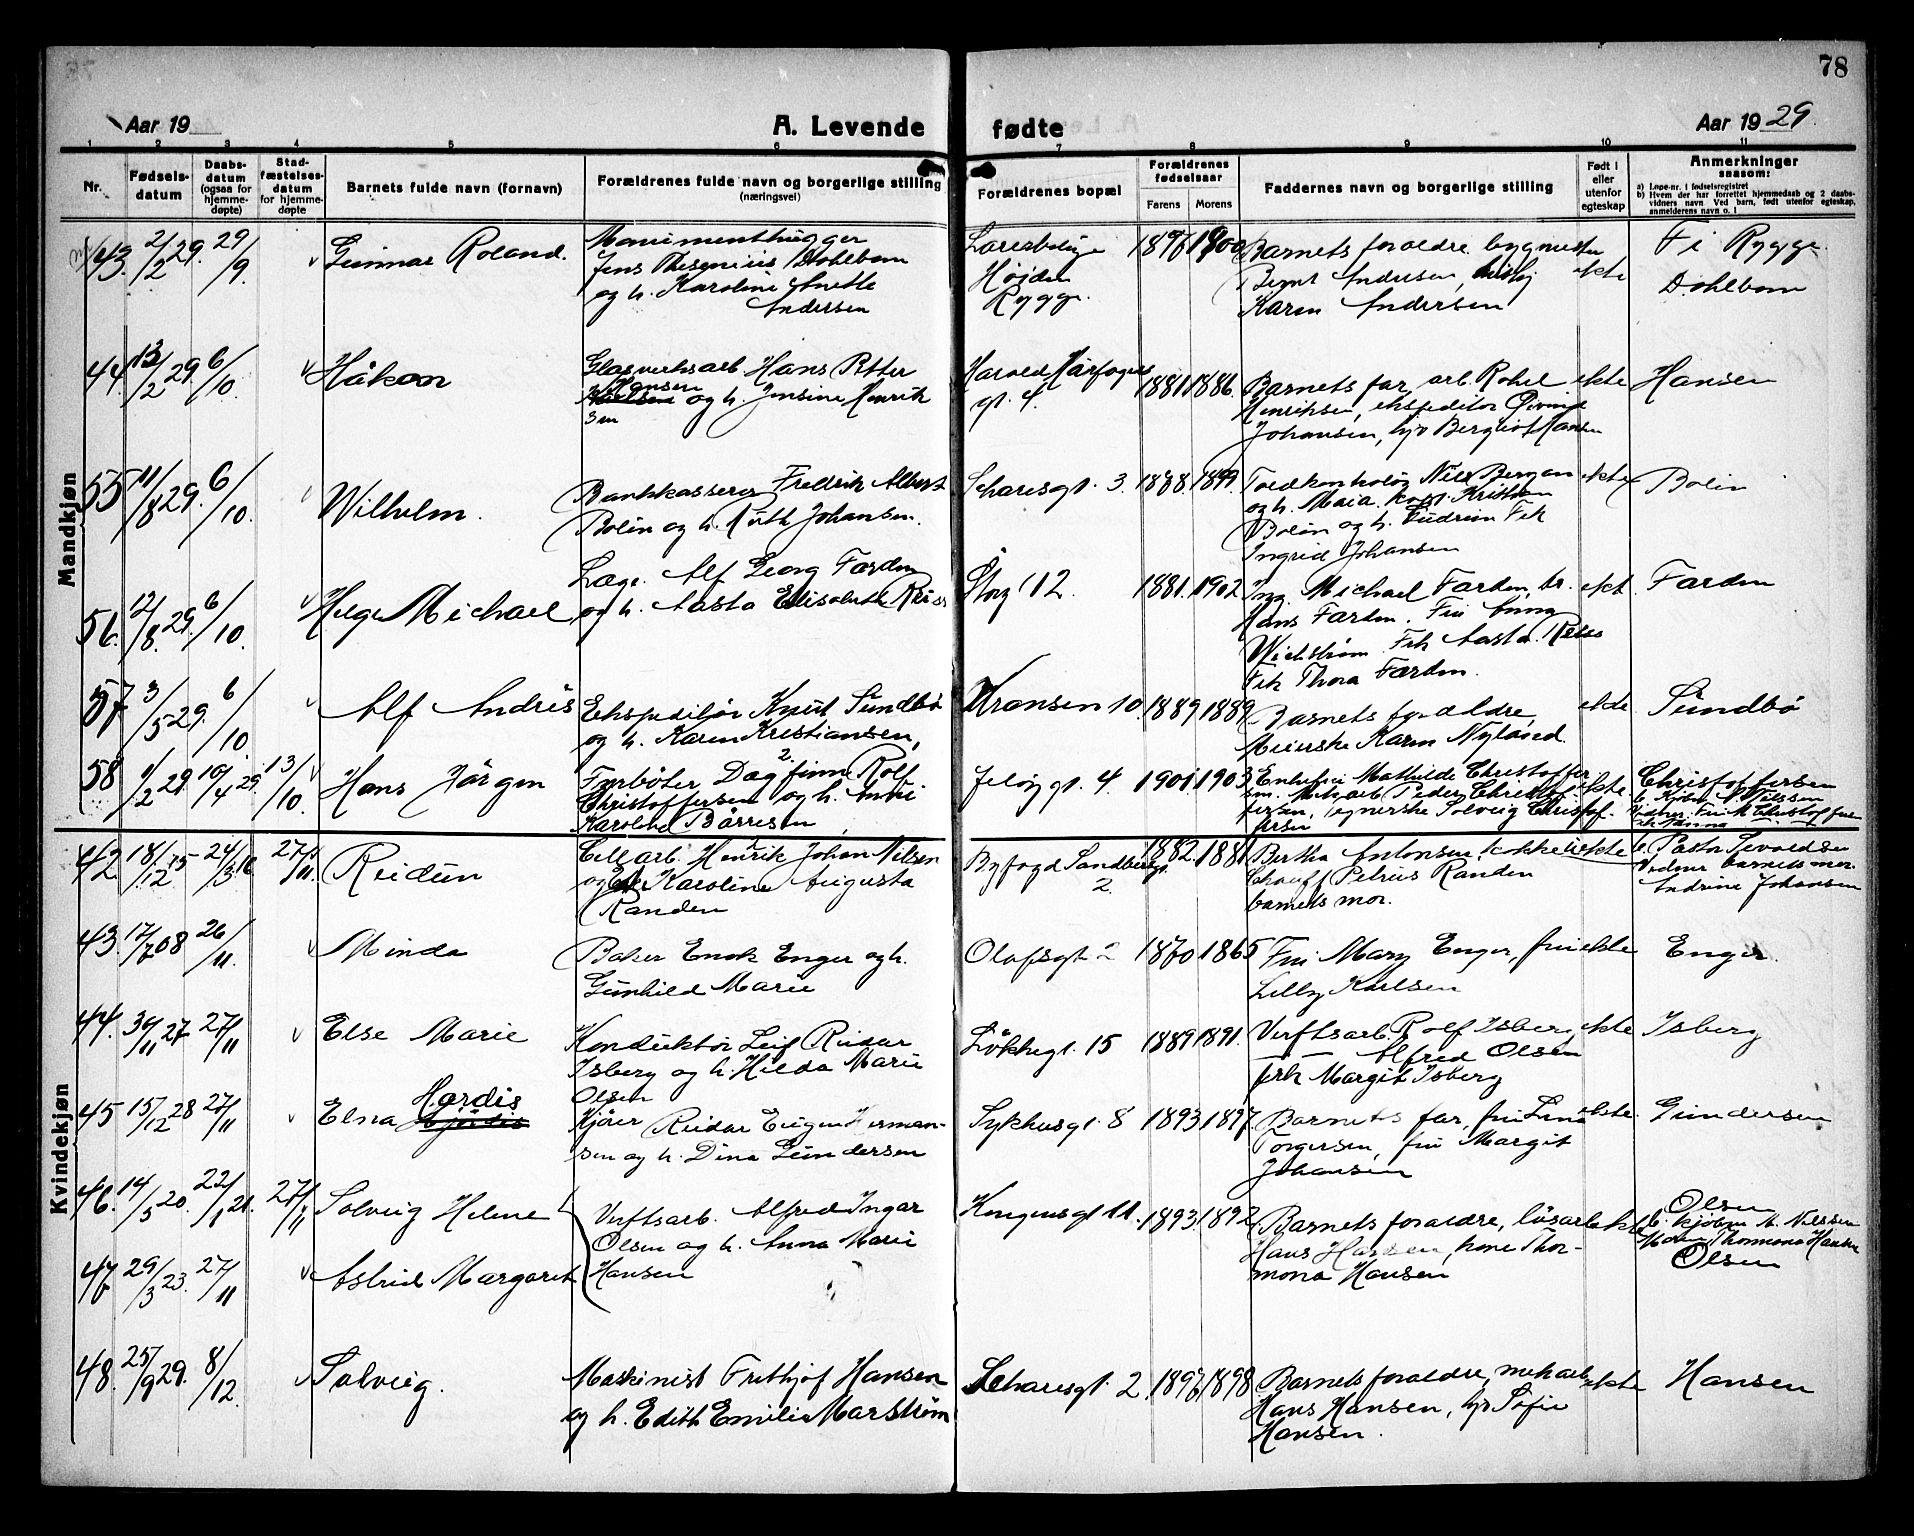 78
Aar 19
A. Levende
fødte
Aar 1929.
1 2 3 4 5 6 7 8 9 10 11
Nr.
Fødsels-
datum
Daabs-
datum
(ogsaa for
hjemme-
døpte)
Stad-
fæstelses-
datum
for hjemme-
døpte
Barnets fulde navn (fornavn)
Forældrenes fulde navn og borgerlige stilling
(næringsvei)
Forældrenes bopæl
Forældrenes
fødselsaar
Farens
Morens
Faddernes navn og borgerlige stilling
Født i
eller
utenfor
egteskap
Anmerkninger
saasom:
a) Løpe-nr. i fødselsregistret
b) Hvem der har forrettet hjemmedaab og 2 daabs-
vidners navn Ved barn, født utenfor egteskap,
anmelderens navn o. l
Mandkjøn
43. 2/2 29. 29/9 Gunnar Roland.
Monumenthugger
Jens Dahlbom
og h. Karoline Anette
Andersen
Højden
Rygge.
1896 1900
Barnets foraldre, bygmester
Bernt Andersen,
Karen Andersen
ekte
F i Rygge.
Dahlbom
44. 13/2 29 6/10 Håkon
Glasverksarb Hans Petter
Hansen
og h. Jensine Henrik
sen
Harald Hårfagres
gt. 4.
1881 1886.
Barnets far, arb. Rohel
Henriksen, ekspeditør Øivind
Johansen, hjv Bergliot Hansen
ekte
Hansen
55 11/8 29. 6/10. Wilhelm.
Bankkasserer Fredrik Albert
Bolin og h. Ruth Johansen.
Scharesgt. 3.
1888. 1899.
Toldkontrolør Nils Bergan
og h. Maia. Kristian
Bolin og h. Gudrun Frk
Ingrid Johansen
ekte
Bolin
56. 12/8. 29. 6/10 Helge Michael
Læge. Alf Georg Farden
og h. Aasta Elisabeth Reiss
Storg 12.
1881. 1902
Ing. Michael Farden, br.
Hans Farden. Fru Anna
Wichstrøm. Frk Aasta. Reiss
Frk Thora Farden.
ekt
Farden
57 3/5 29. 6/10 Alf Andreas
Ekspeditør Knut Sundbø
og h. Karen Kristiansen,
Kransen 10.
1889 1889
Barnets foraldre,
Meierske Karen Nyløsed.
ekte
Sundbø
58 1/2 29 10/4 29. 13/10. Hans Jørgen
Farbøter Dagfinn Rolf
Christoffersen og h. Anni
Karoline Børresen
Jeløygt. 4.
1901. 1903
Enkefrue Mathilde Christoffer
sen. Mekarb Peder Christof-
fersen, syerske Solveig Christof-
fersen
ekte.
Christoffersen
Kvindekjøn
42. 18/12 15 24/3 16 27/11. Reidun
Cell arb. Henrik Johan Nilsen
og Karoline Augusta
Randen
Byfogd Sandbergs
2.
1882. 1881
Bertha Antonsen, kokke
Chauff Petrus Randen
barnets mor.
ekte
b. Pastor Sevaldsen
Vidner barnets mor.
Andrine Johansen
43. 17/7 08 26/11. Minda
Baker Enok Enger og h.
Gunhild Marie
Olafsgt. 2
1870 1865
Fru Mary Enger, fru
Lilly Karlsen
ekte
Enger.
44. 30/11 27 27/11 Else Marie
Konduktør Leif Reidar
Isberg og h. Hilda Marie
Olsen
Løkkegt. 15
1889 1891.
Verftsarb. Rolf Isberg
Alfred Olsen
frk Margit Isberg
ekte
Isberg
45 15/12 28 27/11 Elna Hjørdis Hørdis
Kjører Reidar Eugen Herman-
sen og h. Dina Gundersen
Sykhusgt. 8
1893. 1897
Barnets far, fru Lina
Torgersen, fru Margit
Johansen
ekte.
Gundersen
46. 14/5 20. 22/1 21. 27/11 Solveig Helene
Verftsarb. Alfred Ingar
Olsen og h. Anna Marie
Hansen
Kongensgt 11.
1893. 1892.
Barnets foraldre, løsarb
Hans Hansen, kone Thor-
mona Hansen
ekte
Olsen
47 29/3 23. 27/11 Astrid Margaret
Olsen
48. 25/9 29. 8/12 Solveig.
Maskinist Frithjof Hansen
og h. Edith Emilie Marstrøm
Scharesgt. 2.
1896. 1898
Barnets foraldre, mekarb
Hans Hansen, hjv Sofie
Hansen.
ekte
Hansen